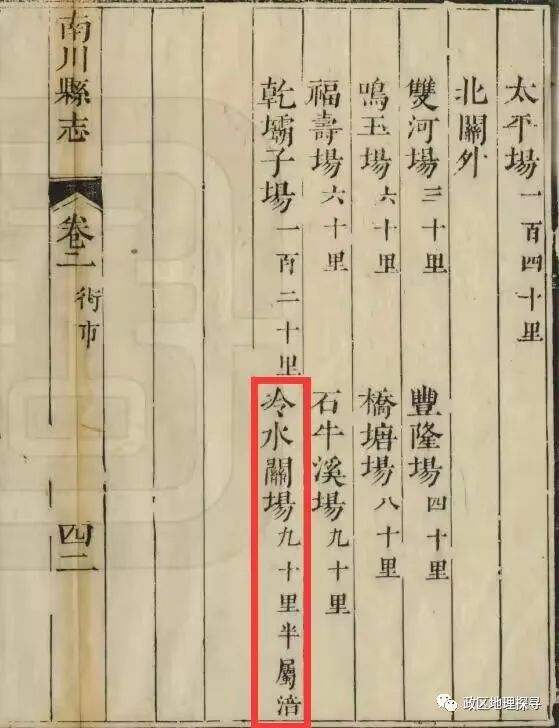 太平場一百四十里
北關外
雙河場三十里
豐隆場四十里
鳴玉場六十里
橋塘場八十里
福壽場六十里
石牛溪場九十里
乾壩子場一百二十里
冷水關場九十里半屬涪
南川縣志
卷二
街市
四二
政区地理探寻